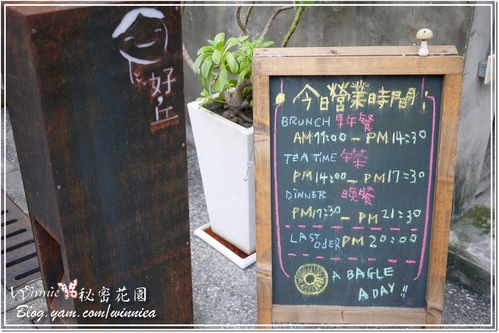 好丘
今日營業時間
BRUNCH 早午餐
AM 11:00 - PM 14:30
TEA TIME 午茶
PM 14:00 - PM 17:30
DINNER 晚餐
PM 17:30 - PM 21:30
LAST ODER PM 20:00
A BAGLE
A DAY!!
Winnie 秘密花園
Blog.yam.com/winnica